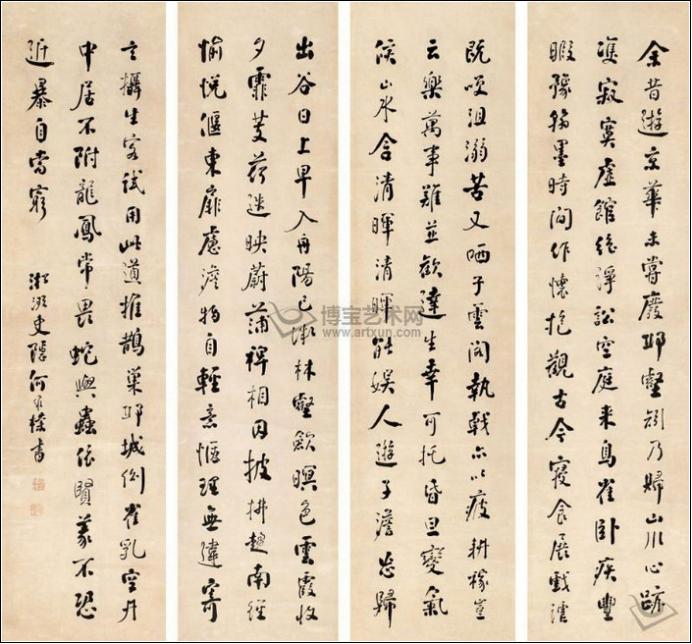 余昔遊京華未嘗廢邱壑矧乃歸山川心跡
雙寂寞虛館絕諍訟空庭来鳥雀卧疾豐
暇豫翰墨時間作懷抱觀古今寢食展戲謔
既笑沮溺苦又哂子雲閣執戟亦以疲耕稼豈
云樂萬事難並歡達生幸可托昏旦變氣
候山水含清暉清暉能娱人遊子澹忘歸
出谷日上早入舟陽已微林壑斂暝色雲霞收
夕霏芰荷迭映蔚蒲稗相因披拂趨南徑
愉悦偃東扉慮澹物自輕意愜理無違寄
言攝生客試用此道推鵲巢邱城側雀乳空井
中居不附龍鳳常畏蛇與蟲依賢義不恐
近暴自當窮
史隱何書
博宝艺术网
www.artxun.com